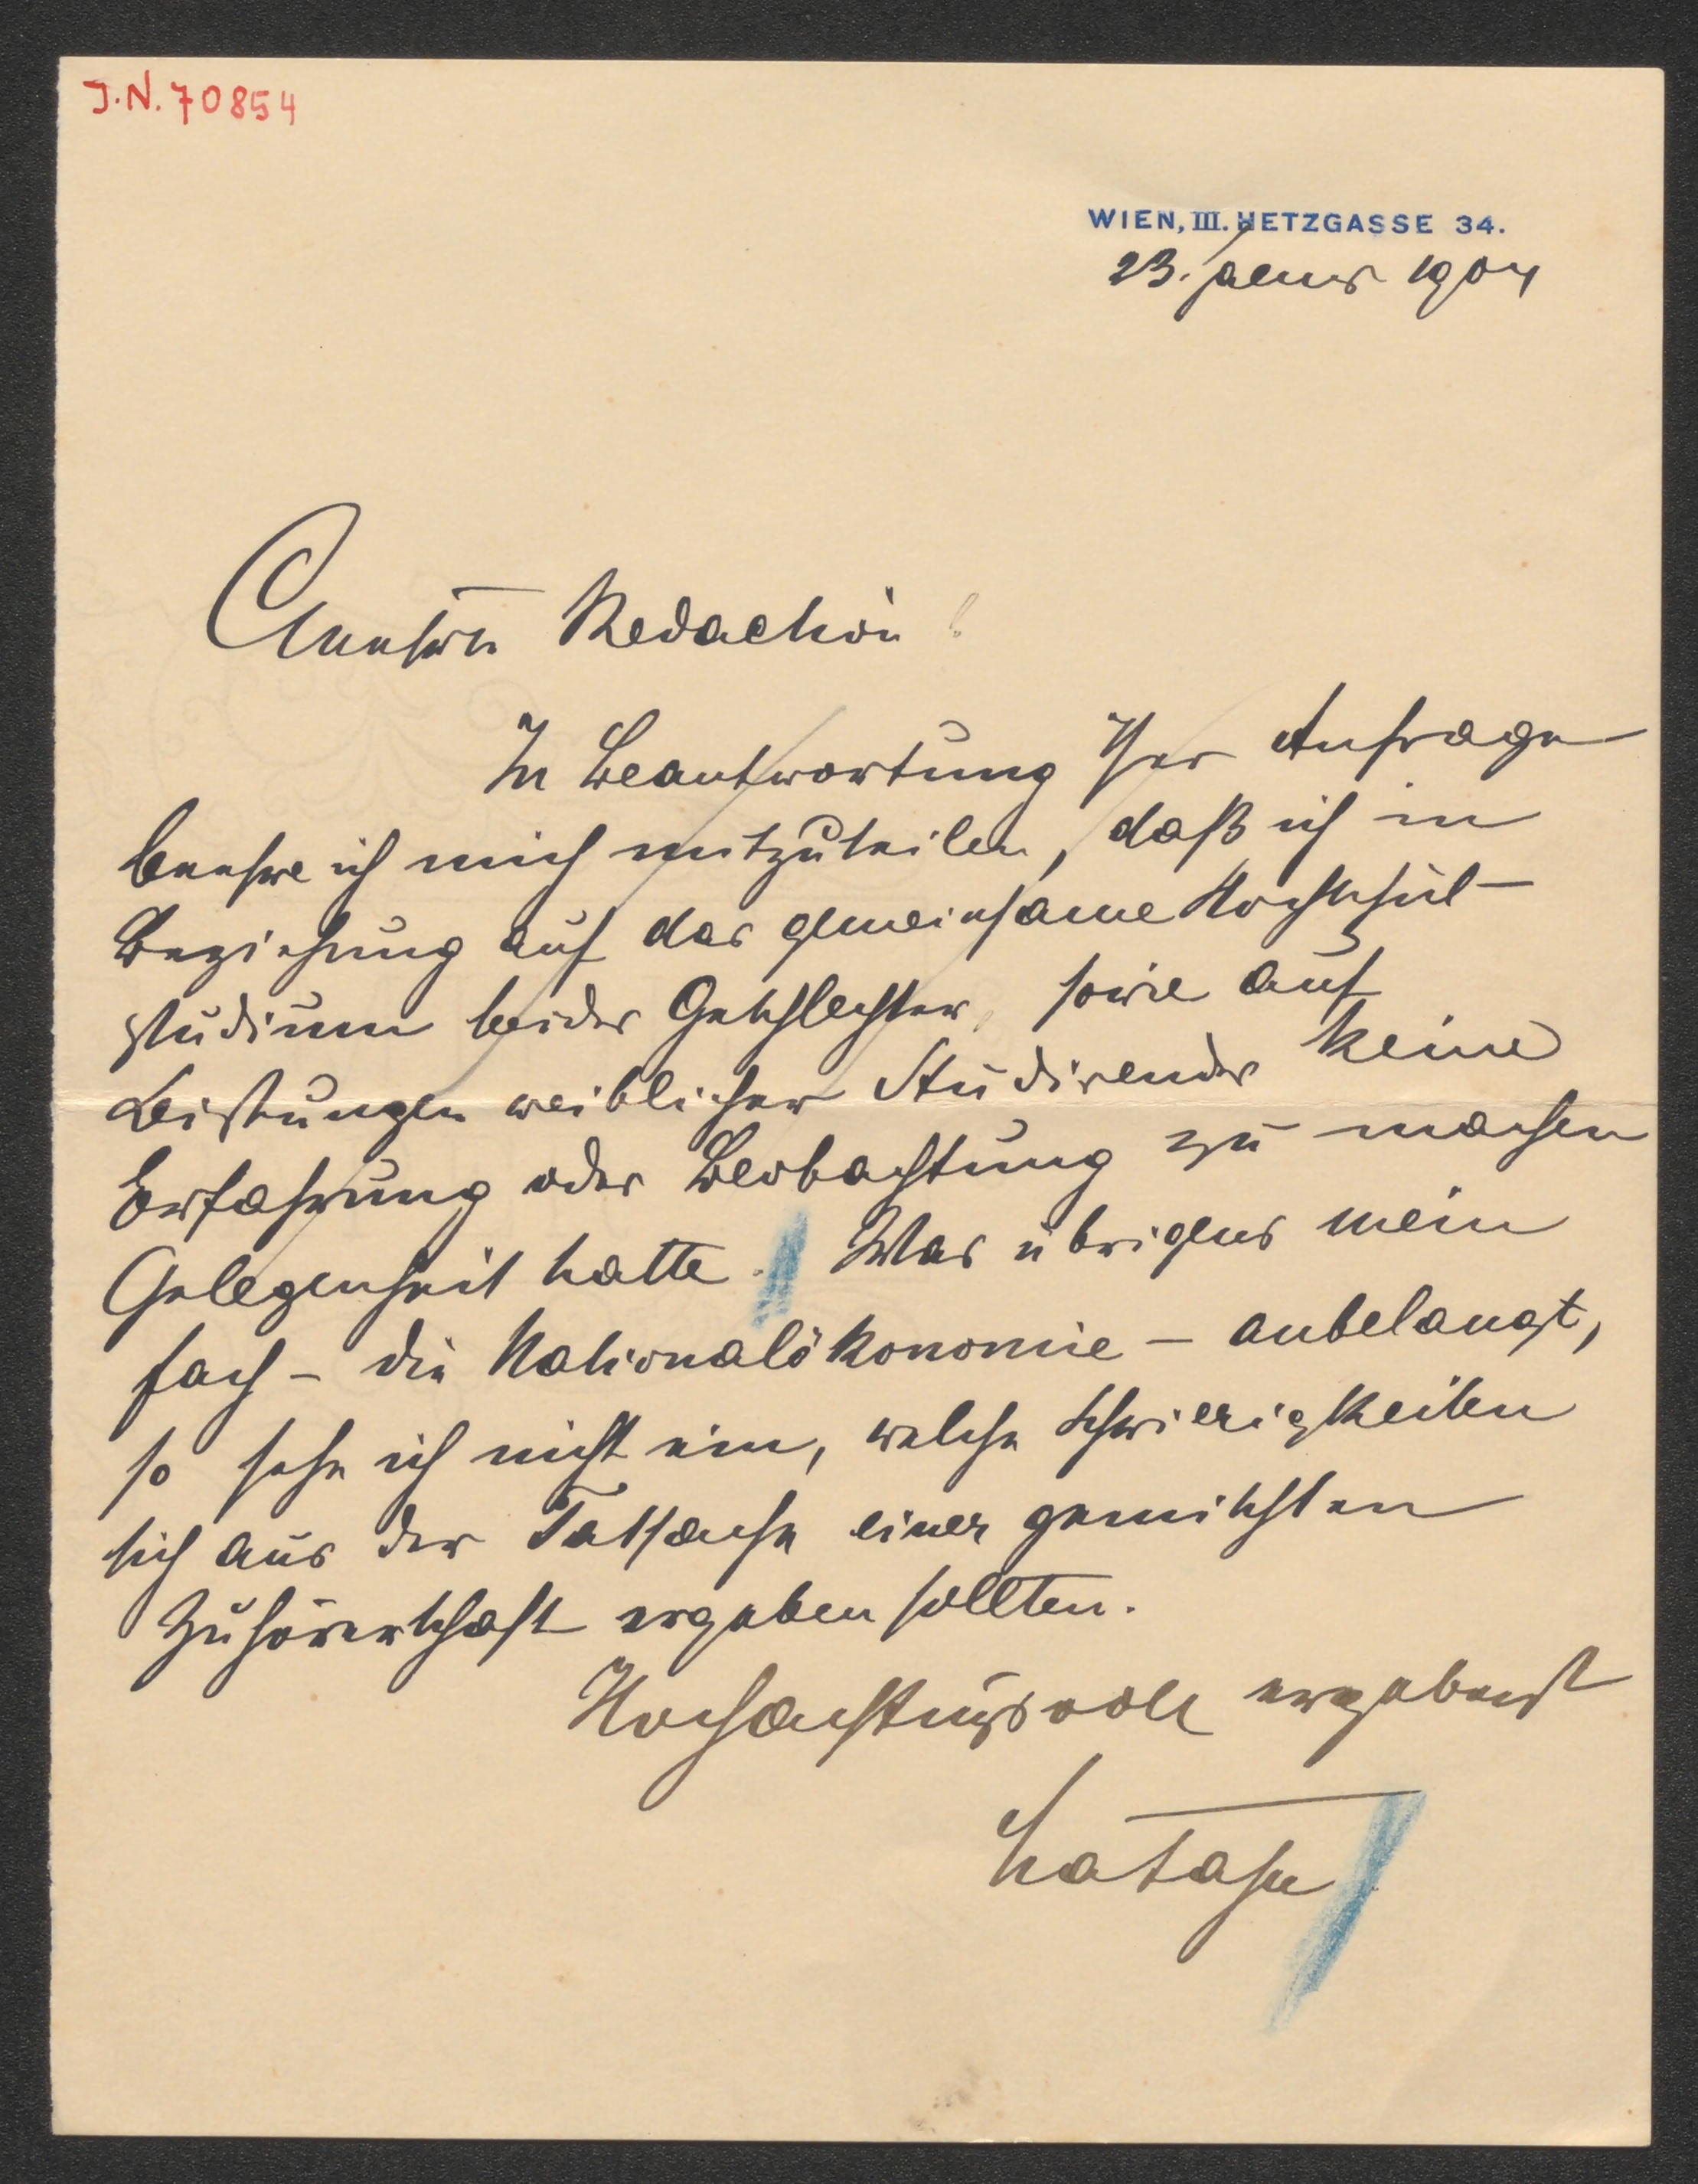 J.N. 70854
WIEN, III. HETZGASSE 34.
23. Jänner 1904
Redaction!
In Beantwortung Ihrer Anfrage
beehre ich mich mitzuteilen, daß ich in
Beziehung auf das gemeinsame Hochschul-
studium beider Geschlechter, sowie auf
Leistungen weiblicher Studirender keine
Erfahrung oder Beobachtung zu machen
Gelegenheit hatte. Was übrigens mein
Fach – die Nationalökonomie – anbelangt,
so sehe ich nicht ein, welche Schwierigkeiten
sich aus der Tatsache einer gemischten
Zuhörerschaft ergeben sollten.
Hochachtungsvoll ergebenst